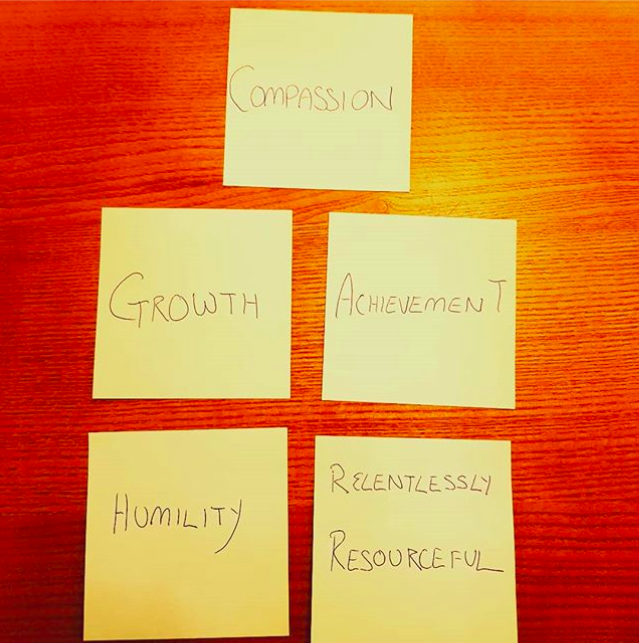 COMPASSION
GROWTH
ACHIEVEMENT
HUMILITY
RELENTLESSLY
RESOURCEFUL